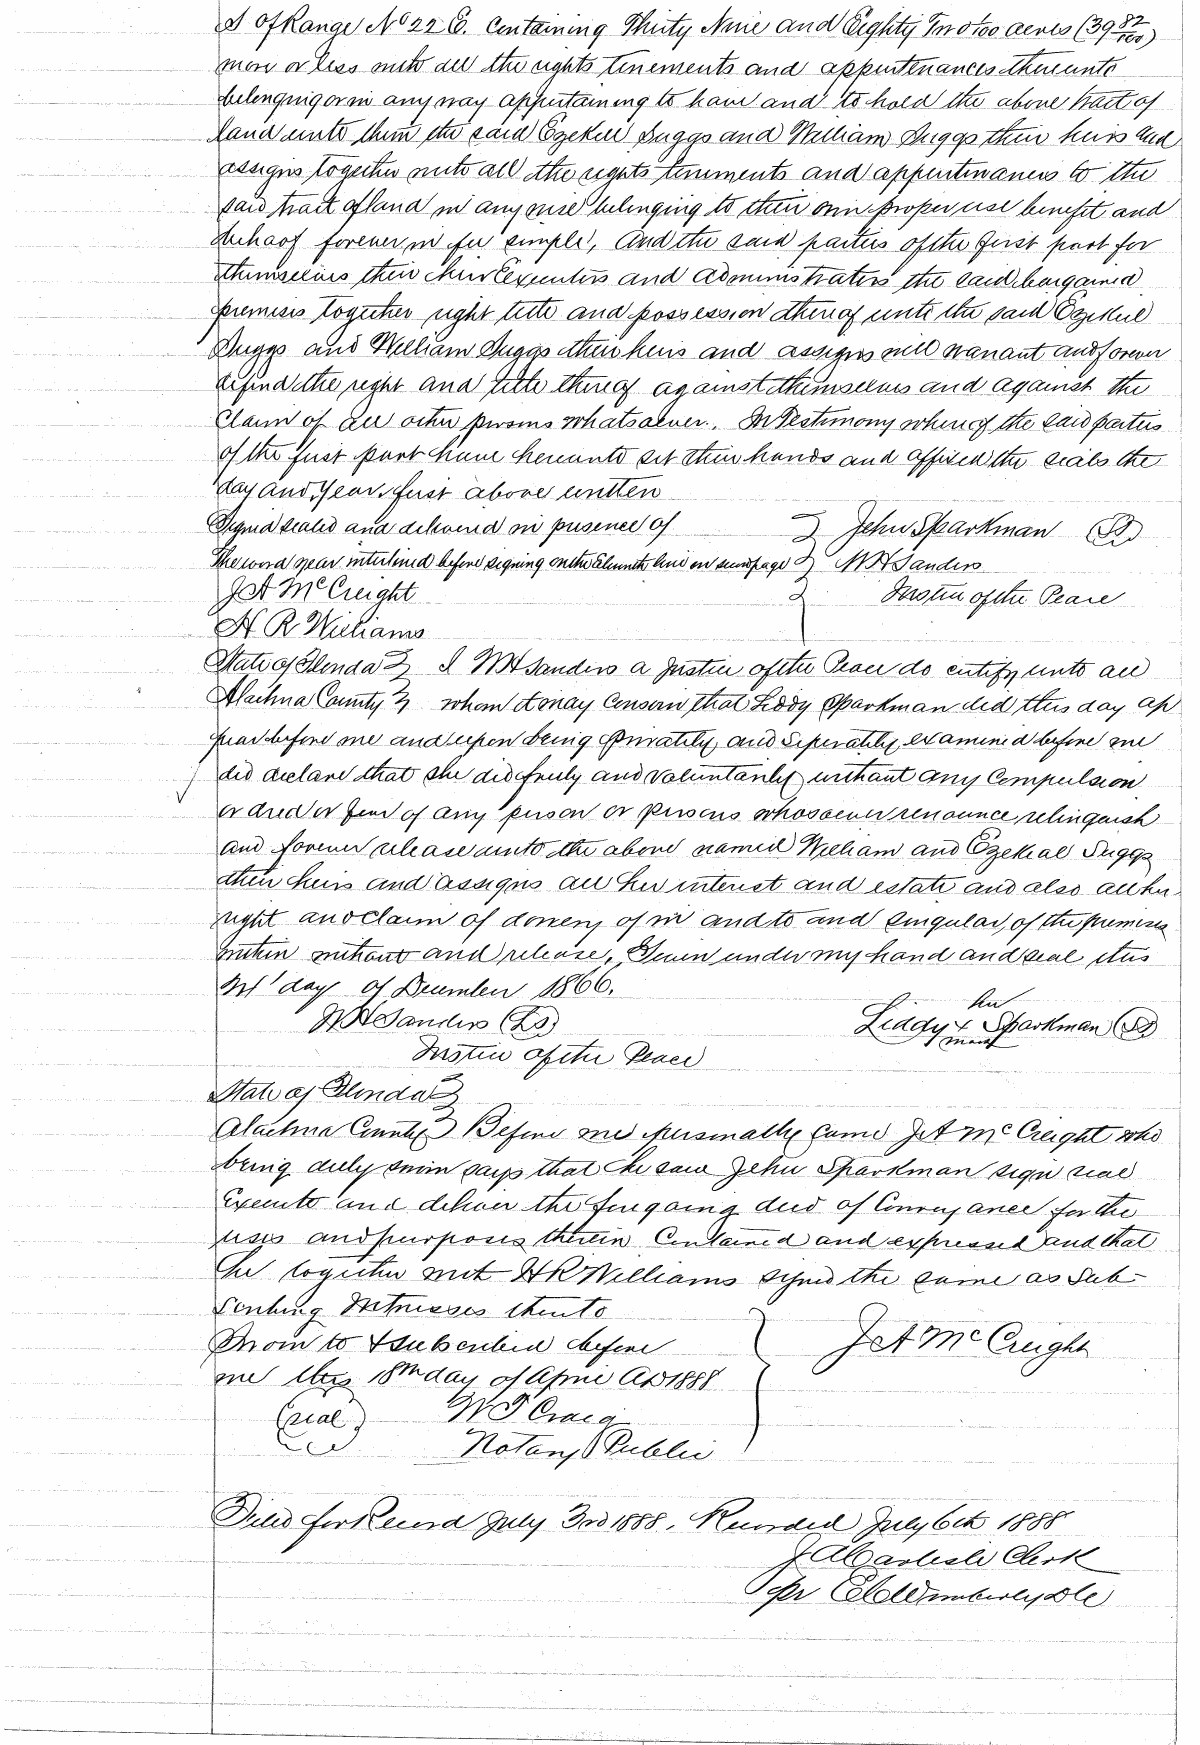 S of Range No 22 E. Containing Thirty Nine and Eighty Two 100 acres (39 82/100)
more or less with all the rights tenements and appurtenances thereunto
belonging or in any way appertaining to have and to hold the above tract of
land unto them the said Ezekiel Suggs and William Suggs their heirs and
assigns together with all the rights tenements and appurtenances to the
said tract of land in any wise belonging to their own proper use benefit and
behoof forever, in fee simple, And the said parties of the first part for
themselves their heirs Executors and administrators the said bargained
premises together right title and possession thereof unto the said Ezekiel
Suggs and William Suggs their heirs and assigns will warrant and forever
defend the right and title thereof against themselves and against the
Claim of all other persons whatsoever. In Testimony whereof the said parties
of the first part have hereunto set their hands and affixed the seals the
day and year first above written
Signed sealed and delivered in presence of John Sparkman (LS)
The word year interlined before signing on the Eleventh line on page W H Sanders
J A McCreight Justice of the Peace
H R Williams
State of Florida I W H Sanders a Justice of the Peace do certify unto all
Alachua County whom it may Concern that Liddy Sparkman did this day ap
pear before me and upon being privately and seperately examined before me
did declare that she did freely and voluntarily without any Compulsion
or dred or fear of any person or persons whosoever renounce relinquish
and forever release unto the above named William and Ezekial Suggs
their heirs and assigns all her interest and estate and also all her
right and claim of dowery of in and to and singular, of the premises
within without and release. Given under my hand and seal this
1st day of December 1866.
W H Sanders (LS) Liddy her x mark Sparkman (LS)
Justice of the Peace
State of Florida
Alachua County Before me personally came J A McCreight who
being duly sworn says that he saw John Sparkman sign seal
Execute and deliver the foregoing deed of Conveyance for the
uses and purposes therein Contained and expressed and that
he together with H R Williams signed the same as Sub-
scribing Witnesses thereto
Sworn to & subscribed before J A McCreight
me this 18th day of April AD 1888
(seal) W T Craig
Notary Public
Filed for Record July 3rd 1888. Recorded July 6th 1888
J A Carlisle Clerk
Per Wimberly DC